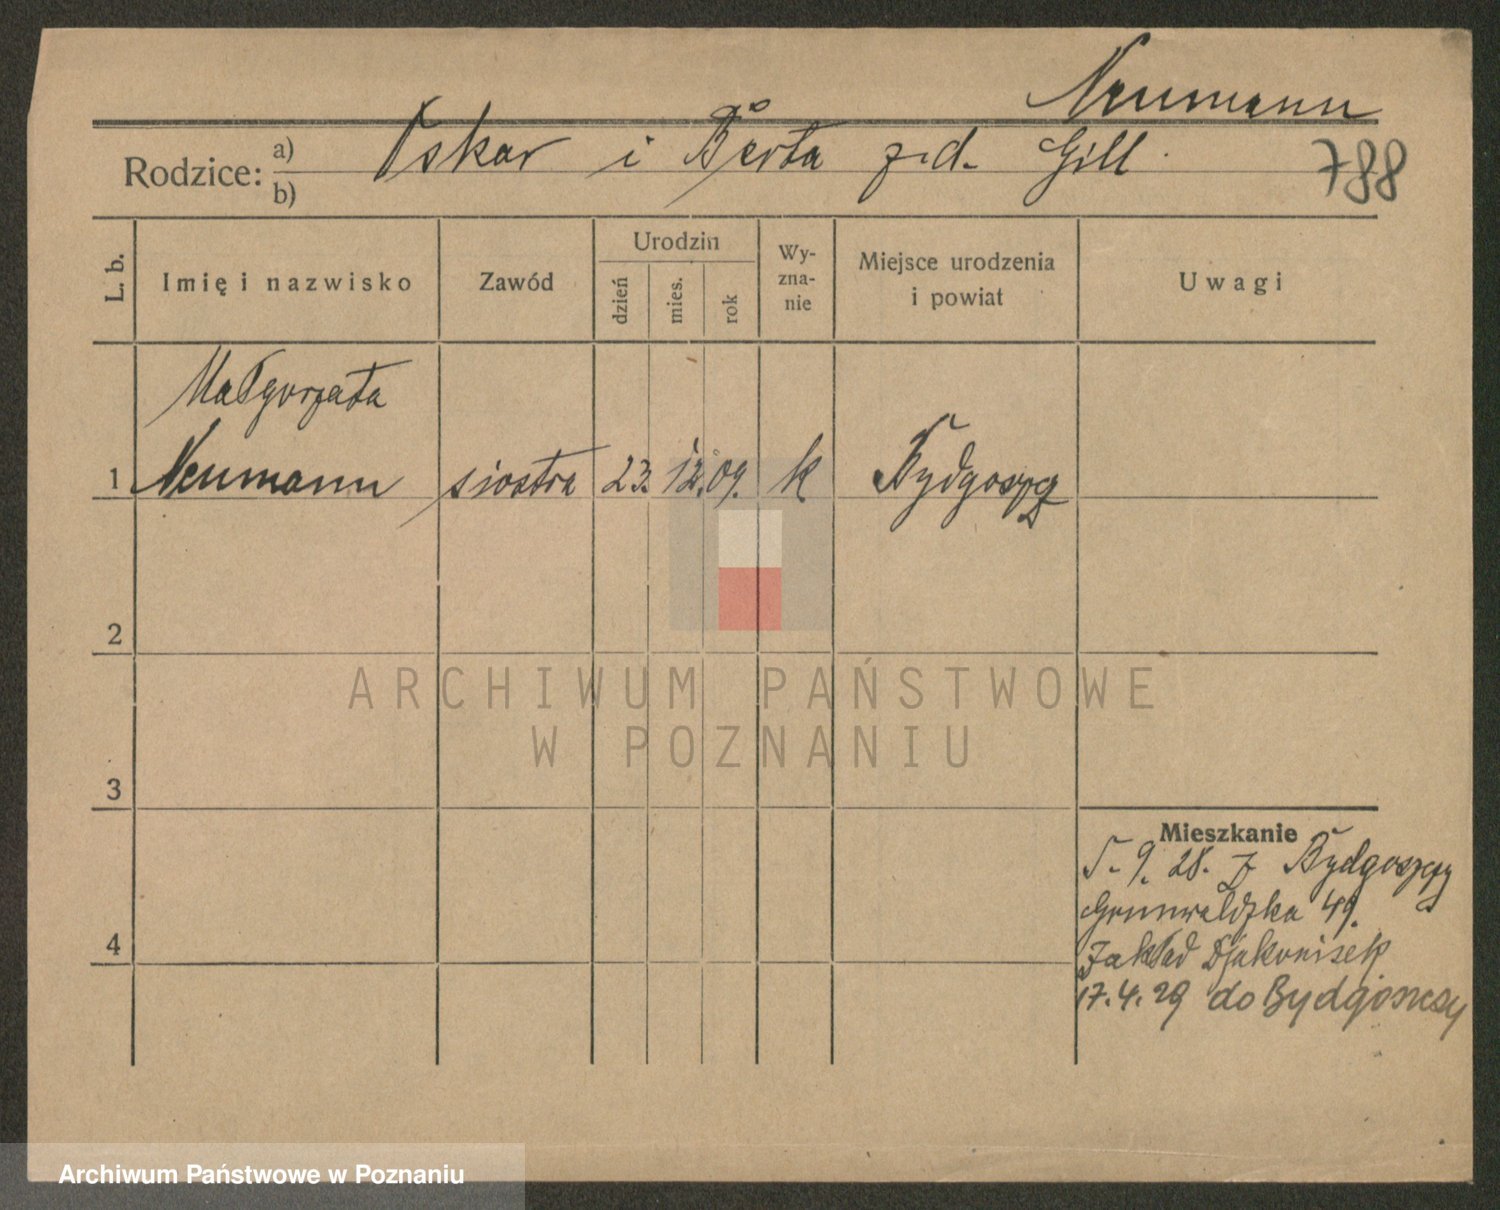 Neumann
Rodzice: a) Oskar i Berta z d. Gill.
b)
788
L. b.
Imię i nazwisko
Zawód
Urodzin
dzień
mies.
rok
Wy-
zna-
nie
Miejsce urodzenia
i powiat
Uwagi
Małgorzata
1 Neumann siostra 23. 12. 09. k Bydgoszcz
2
3
4
Mieszkanie
5. 9. 28. z Bydgoszczy
Grunwaldzka 49.
Zakład Djakonisek
17. 4. 29 do Bydgoszczy
ARCHIWUM PAŃSTWOWE
W POZNANIU
Archiwum Państwowe w Poznaniu